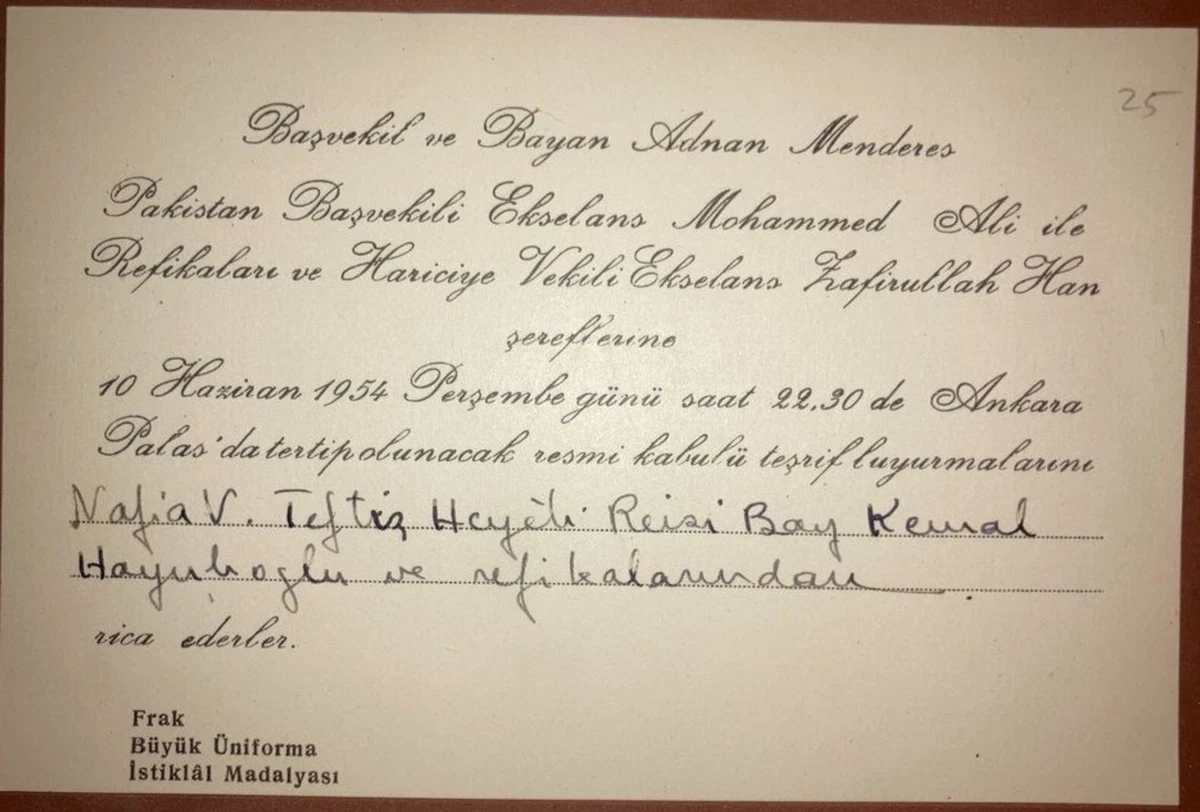 25
Başvekil ve Bayan Adnan Menderes
Pakistan Başvekili Ekselans Mohammed Ali ile
Refikaları ve Hariciye Vekili Ekselans Zafirullah Han
şereflerine
10 Haziran 1954 Perşembe günü saat 22.30 de Ankara
Palas'da tertip olunacak resmi kabulü teşrif luyurmalarını
Nafia V. Teftiş Heyeti Reisi Bay Kemal
ve refikalarından
rica ederler.
Frak
Büyük Üniforma
İstiklâl Madalyası